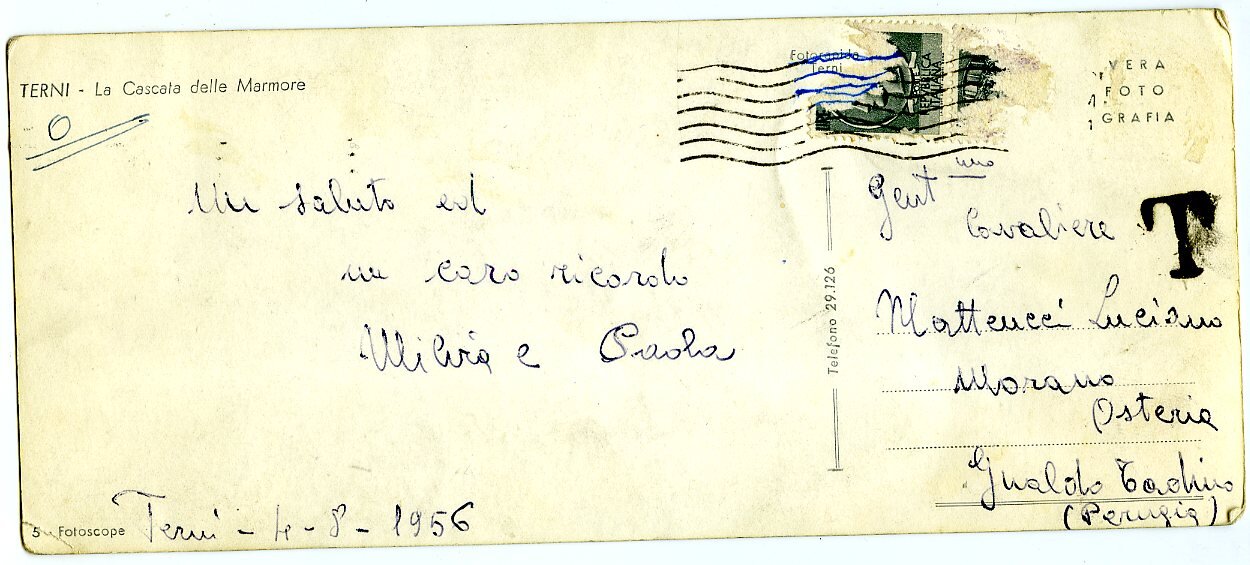 TERNI - La Cascata delle Marmore
Fotorapida
Terni
VERA
FOTO
GRAFIA
REPUBBLICA
ITALIANA
T
Un saluto ed
un caro ricordo
Milvia e Paola
Terni - 4-8-1956
5 - Fotoscope
Telefono 29.126
Gent mo
Cavaliere
Matteucci Luciano
Morano
Osteria
Gualdo Tadino
(Perugia)